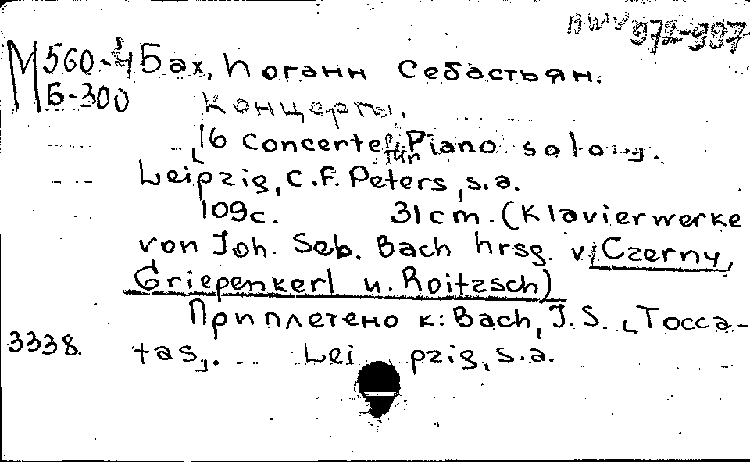 BWV 972-987
М 560-4 Бах, Иоганн Себастьян.
Б-300 Концерты.
[16 Concerte für Piano solo].
Leipzig, C.F. Peters, s.a.
109с. 31cm. (Klavierwerke
von Joh. Seb. Bach hrsg. v. Czerny,
Griepenkerl u. Roitzsch)
Приплетено к: Bach, J.S. [Tocca-
3338. tas]. Leipzig, s.a.